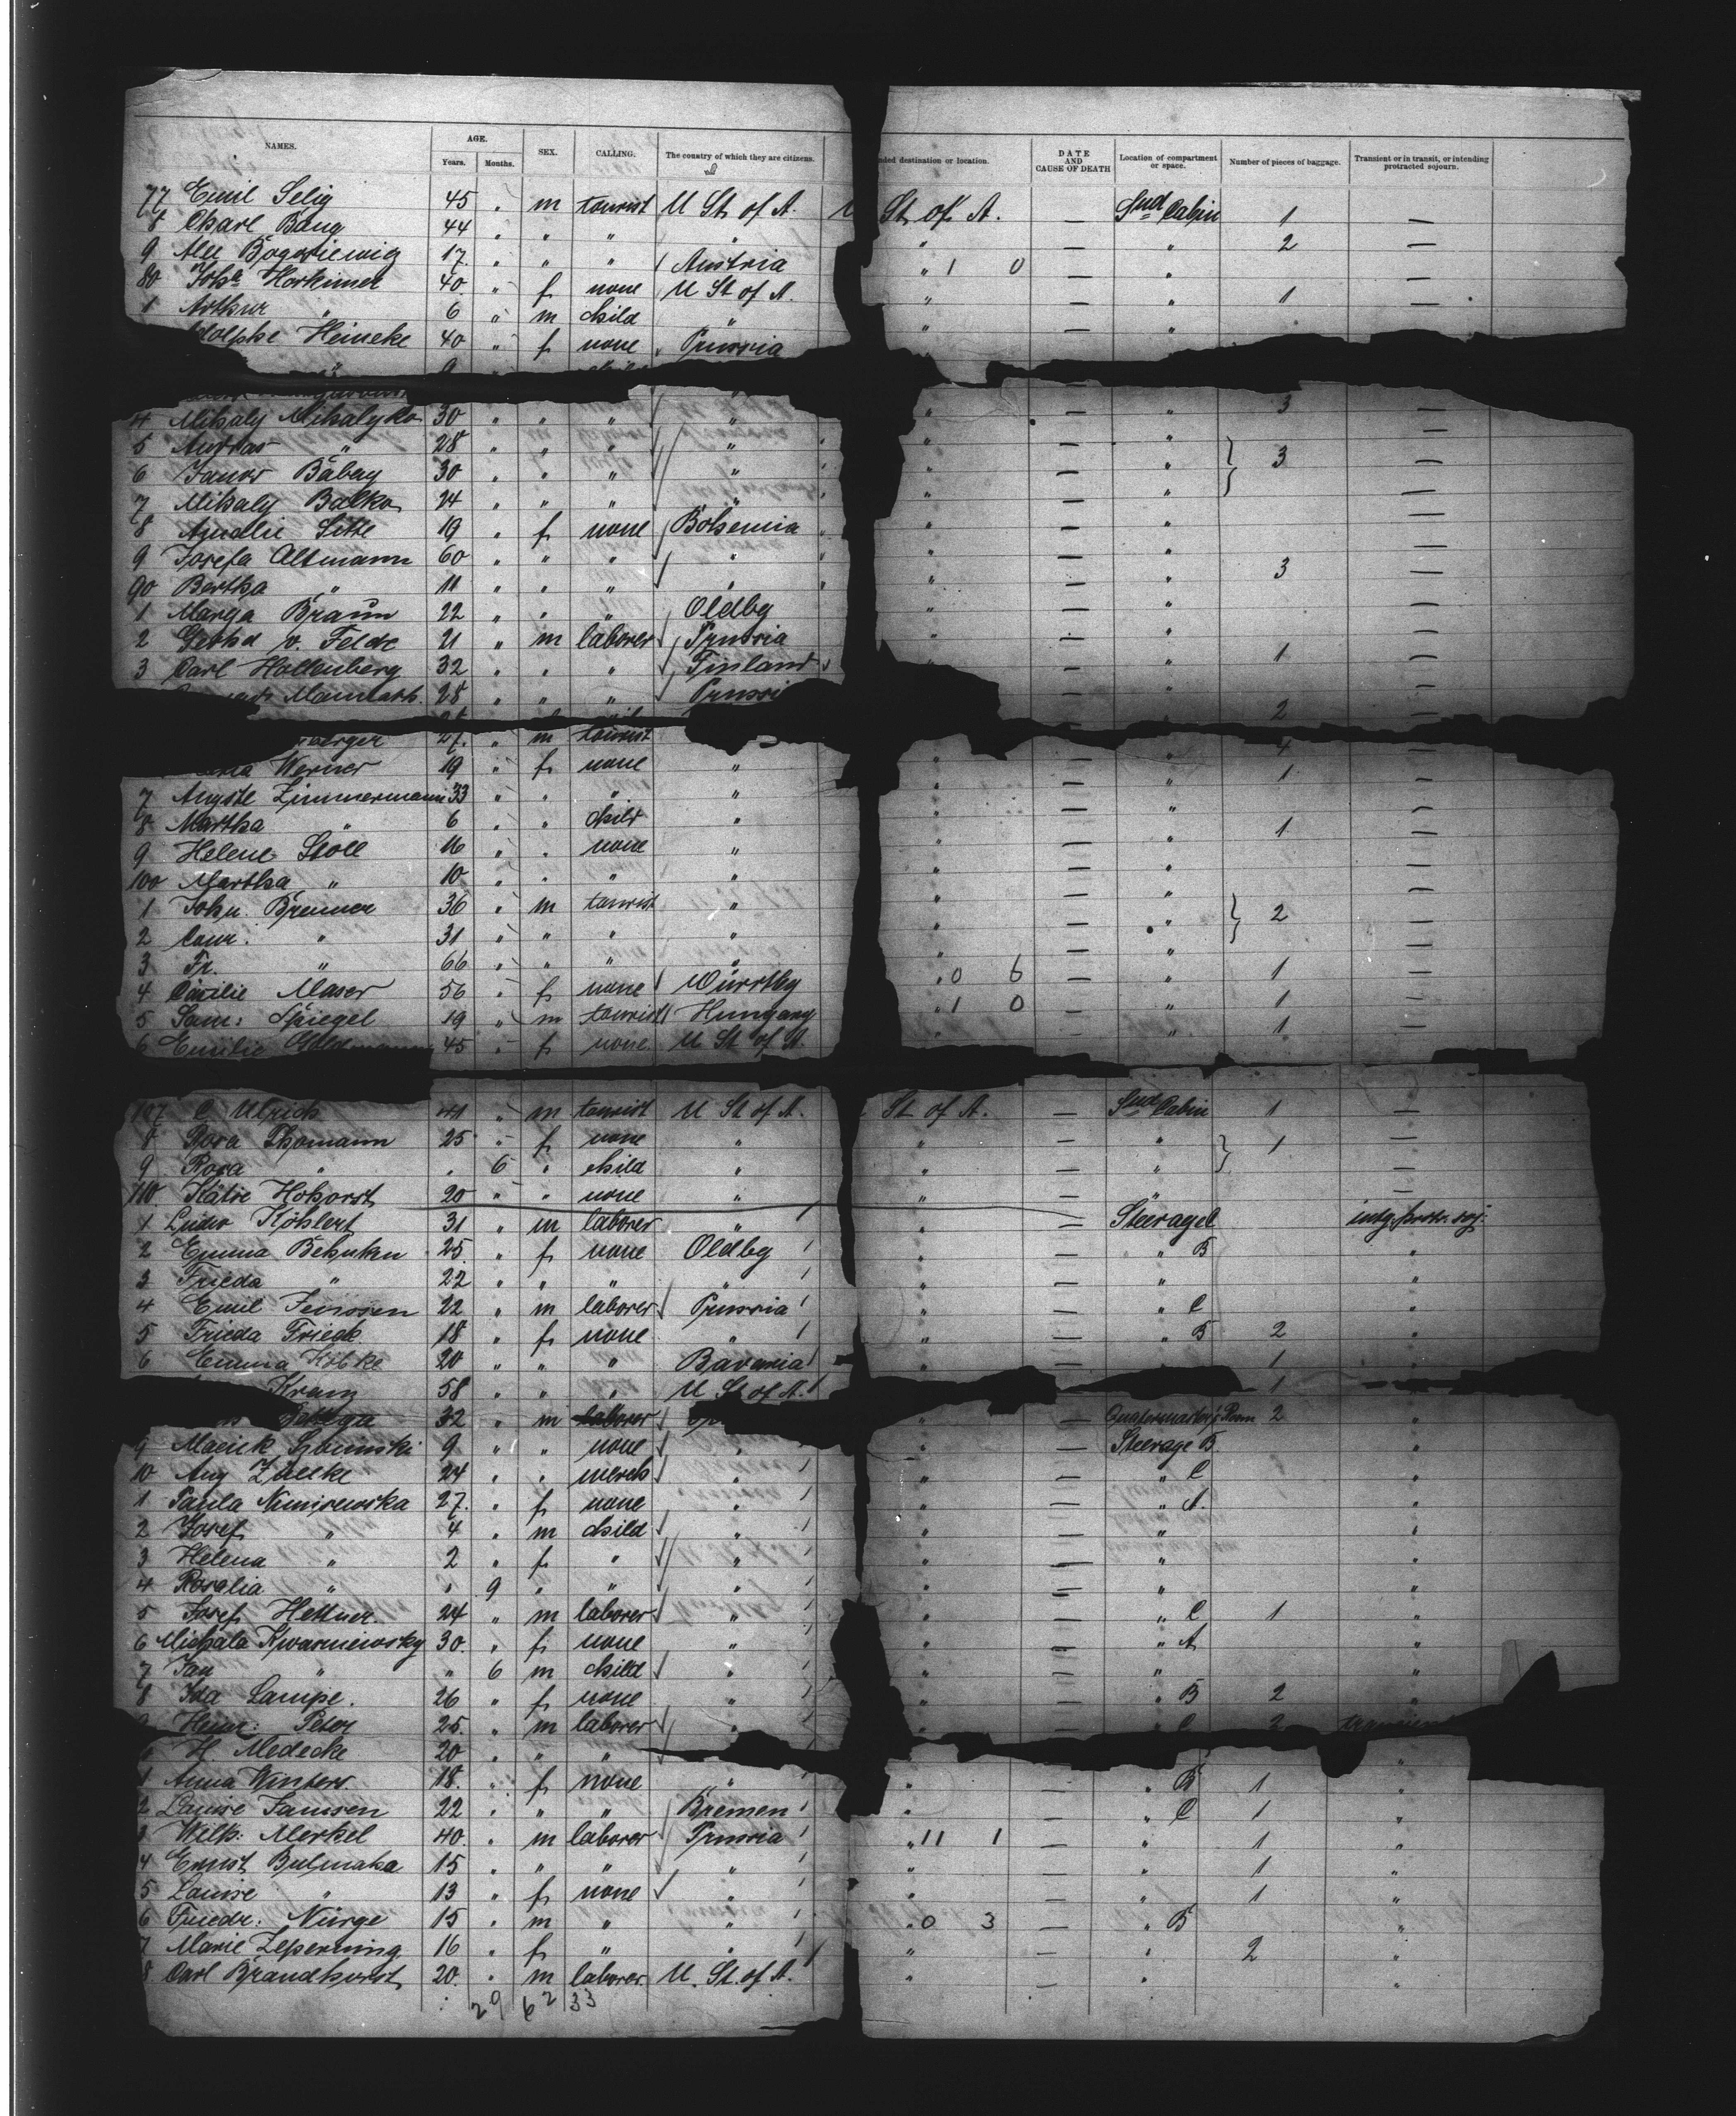 NAMES. AGE. Years. Months. SEX. CALLING. The country of which they are citizens. nded destination or location. DATE AND CAUSE OF DEATH Location of compartment or space. Number of pieces of baggage. Transient or in transit, or intending protracted sojourn.
77 Emil Selig 45 " m tourist U St. of A. U St. of A. — 2nd Cabin 1 —
8 Charl Bang 44 " " " " " — " 2 —
9 17 " " " Austria " 1 0 — "
80 Joha Horkimer 40 " f none U St of A. " — " 1 —
1 Arthur " 6 " m child " " — " —
dolphe Heineke 40 " f none Prussia
4 Mihaly Mihalyko 30 " " " " " — " 3 —
5 Andras " 28 " " " " " — " —
6 Janos Babay 30 " " " " " — " 3 —
7 Mihaly Balko 24 " " " " " — " —
8 Amalie 19 " f none Bohemia " — " —
9 Josefa Altmann 60 " " " " " — " —
90 Bertha " 11 " " " " " — " 3 —
1 Marga Braun 22 " " " Oldbg " — " —
2 Gerhd v. Felde 21 " m laborer Prussia " — " —
3 Carl Hollenberg 32 " " " Finland — " 1 —
28 " " " Prussi — " 2 —
berger 27 " m tourist — 4 —
Werner 19 " f none " " — " 1 —
7 Auguste Zimmermann 33 " " " " " — "
8 Martha " 6 " " child " " — " 1 —
9 Helene Stoll 16 " " none " " — " —
100 Martha " 10 " " " " " — " —
1 John. Brenner 36 " m tourist " " — " 2 —
2 Conr. " 31 " " " " " — " —
3 Fr. " 66 " " " " " —
4 Cäcilie Maser 56 " f none Württbg " 0 6 — " 1 —
5 Sam: Spiegel 19 " m tourist Hungary " 1 0 — " 1 —
6 Emilie 45 " f none U St of A. " — " 1 —
107 C Ulrich 41 " m tourist U St of A. St of A. — 2nd Cabin 1 —
8 Rosa Thomann 25 " f none " " — " 1 —
9 Rosa " " 6 " child " " — " —
110 Kätie Hohorst 20 " " none " " — " —
1 Ludw Köhlert 31 " m laborer " " — Steerage C intg. protr. soj.
2 Emma Behnken 25 " f none Oldbg " — " B "
3 Frieda " 22 " " " " " — " "
4 Emil Jenssen 22 " m laborer Prussia " — " C "
5 Frieda Frieck 18 " f none " " — " B 2 "
6 Emma Köbke 20 " " " Bavaria — 1
Kram 58 " " " U St of A. 1
32 " m laborer " — Quartermaster's Room 2 "
9 9 " " none " " — Steerage B. "
10 Aug Zuelke 24 " " merch " " — " C "
1 Paula 27 " f none " " — " A. "
2 Josef " 4 " m child " " — " "
3 Helena " 2 " f " " " — " "
4 Rosalia " " 9 " " " " — " "
5 Josef Hettner 24 " m laborer " " — " C 1 "
6 Michala Kwasniewsky 30 " f none " " — " A "
7 Jan " " 6 m child " " — " "
8 Ida Lampe. 26 " f none " " — " B 2 "
Heinr: Peter 25 " m laborer " — " C
H. Medecke 20 " " " "
1 Anna Winters 18 " f none " " — " B 1 "
2 Louise Jamsen 22 " " " Bremen " — " C 1 "
3 Wilh: Merkel 40 " m laborer Prussia " 11 1 — " 1 "
4 Ernst Bulmaka 15 " " " " " — " 1 "
5 Louise " 13 " f none " " — " 1 "
6 Friedr: Nürge 15 " m " " " 0 3 — " B "
7 Marie Zeperning 16 " f " " " — " 2 "
8 Carl Brandhorst 20 " m laborer U. St. of A. " — " "
29 62 33